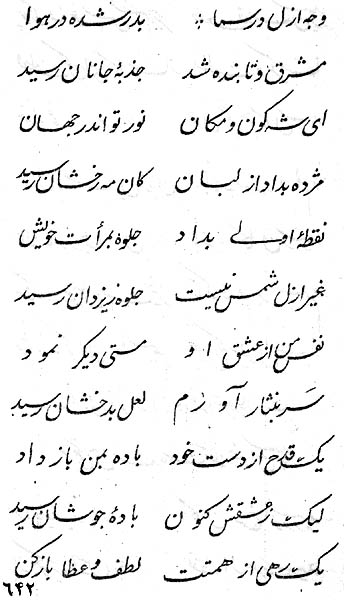 وجه ازل در سما ٭ بدر شده در هوا
مشرق و تابنده شد جذبهٔ جانان رسید
ای شه کون و مکان نور تو اندر جهان
مژده بداد از لبان کان مه رخشان رسید
نقطهٔ اولی بداد جلوه بمرأت خویش
غیر ازل شمس نیست جلوه ز یزدان رسید
نفس من از عشق او مستی دیگر نمود
سر بنثار آورم لعل بدخشان رسید
یک قدح از دست خود باده بمن باز داد
لیک ز عشقش کنون بادهٔ جوشان رسید
یک رهی از همتت لطف و عطا باز کن
٦٤٢